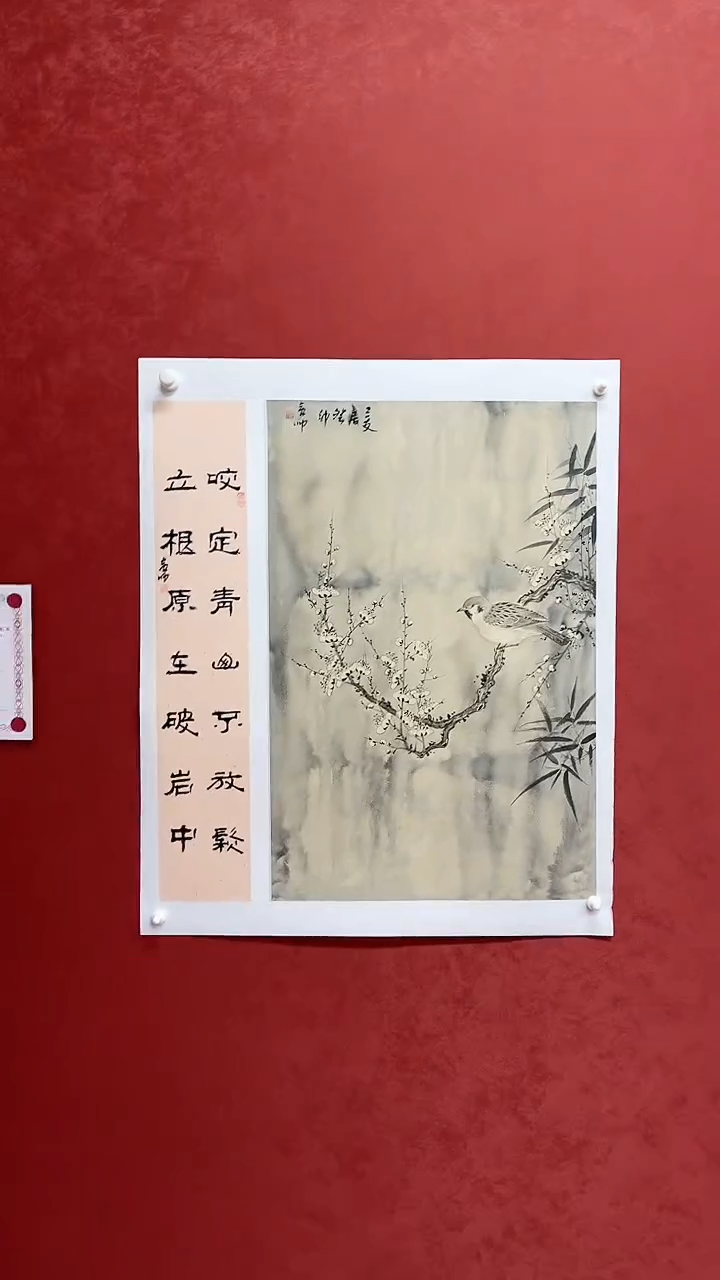 咬定青山不放鬆
立根原在破岩中